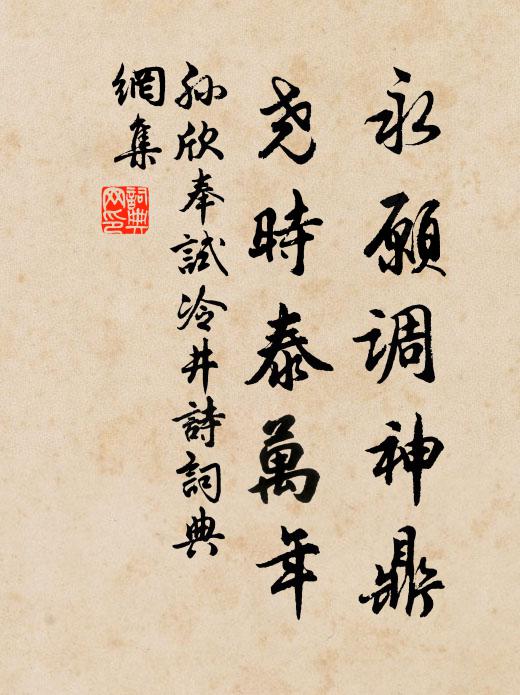 永願調神鼎
堯時泰萬年
孫欣奉試冷井詩詞典
網集
詞典
网印